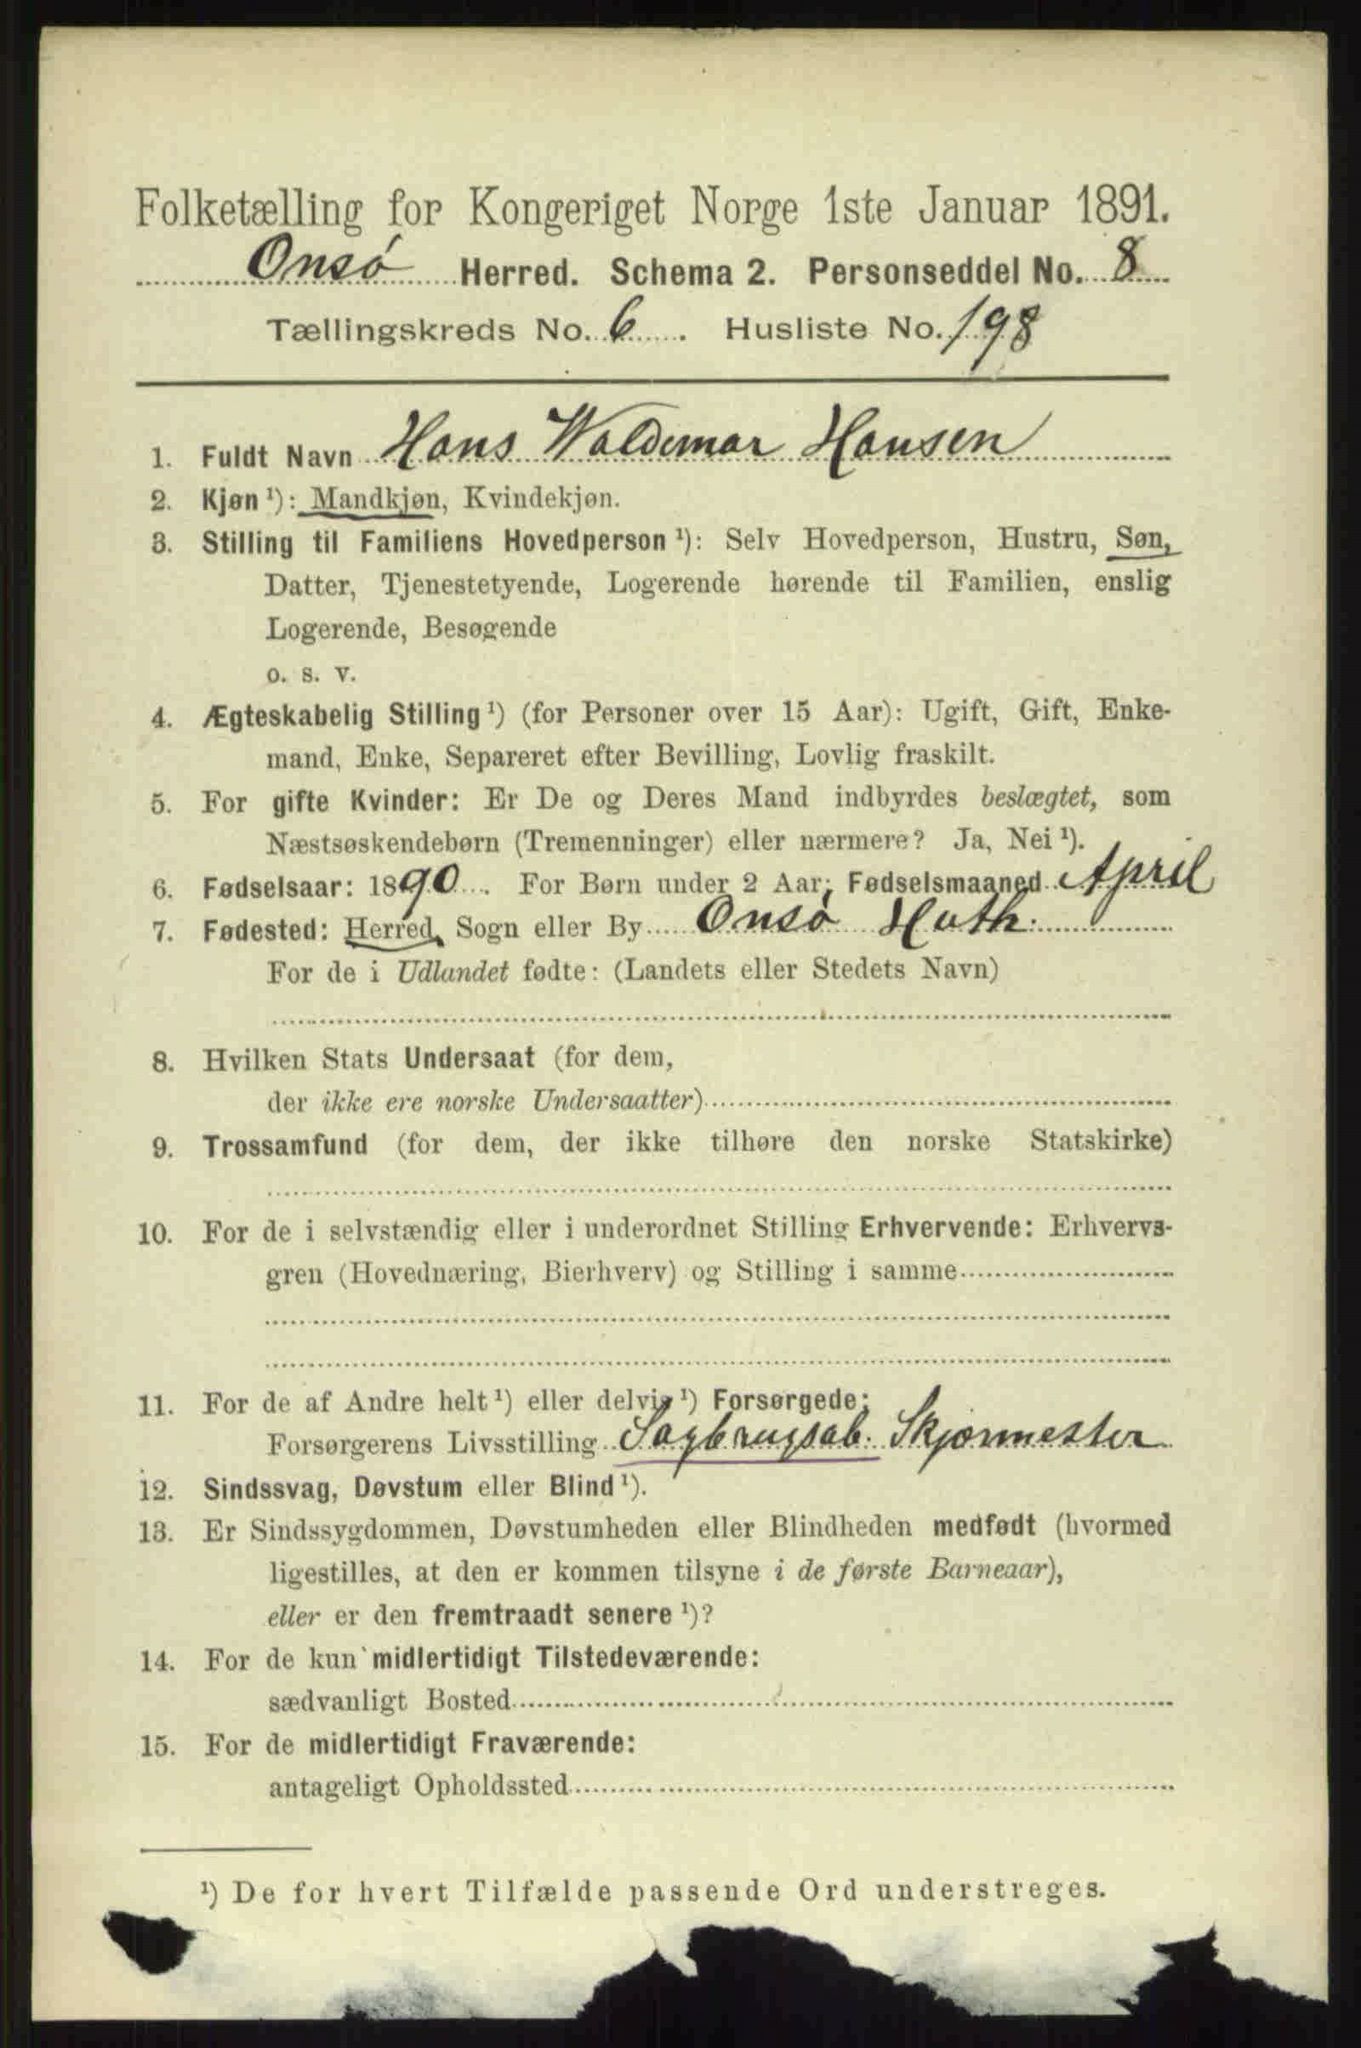 Folketælling for Kongeriget Norge 1ste Januar 1891.
Onsø Herred. Schema 2. Personseddel No. 8
Tællingskreds No. 6. Husliste No. 198
1. Fuldt Navn Hans Waldemar Hansen
2. Kjøn ¹): Mandkjøn, Kvindekjøn.
3. Stilling til Familiens Hovedperson ¹): Selv Hovedperson, Hustru, Søn,
Datter, Tjenestetyende, Logerende hørende til Familien, enslig
Logerende, Besøgende
o. s. v.
4. Ægteskabelig Stilling ¹) (for Personer over 15 Aar): Ugift, Gift, Enke-
mand, Enke, Separeret efter Bevilling, Lovlig fraskilt.
5. For gifte Kvinder: Er De og Deres Mand indbyrdes beslægtet, som
Næstsøskendebørn (Tremenninger) eller nærmere? Ja, Nei ¹).
6. Fødselsaar: 1890. For Børn under 2 Aar: Fødselsmaaned April
7. Fødested: Herred, Sogn eller By Onsø
For de i Udlandet fødte: (Landets eller Stedets Navn)
8. Hvilken Stats Undersaat (for dem,
der ikke ere norske Undersaatter)
9. Trossamfund (for dem, der ikke tilhøre den norske Statskirke)
10. For de i selvstændig eller i underordnet Stilling Erhvervende: Erhvervs-
gren (Hovednæring, Bierhverv) og Stilling i samme
11. For de af Andre helt ¹) eller delvis ¹) Forsørgede:
Forsørgerens Livsstilling Sagbrugsab. Skjærmester
12. Sindssvag, Døvstum eller Blind ¹).
13. Er Sindssygdommen, Døvstumheden eller Blindheden medfødt (hvormed
ligestilles, at den er kommen tilsyne i de første Barneaar),
eller er den fremtraadt senere ¹)?
14. For de kun midlertidigt Tilstedeværende:
sædvanligt Bosted
15. For de midlertidigt Fraværende:
antageligt Opholdssted
¹) De for hvert Tilfælde passende Ord understreges.